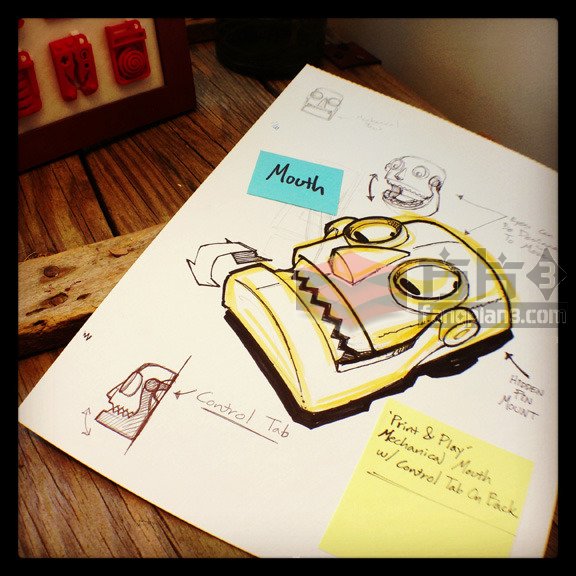 Mouth
Control Tab
HIDDEN
PIN
MOUNT
"Print & Play"
Mechanical Mouth
w/ Control Tab On Back
fangpian3.com